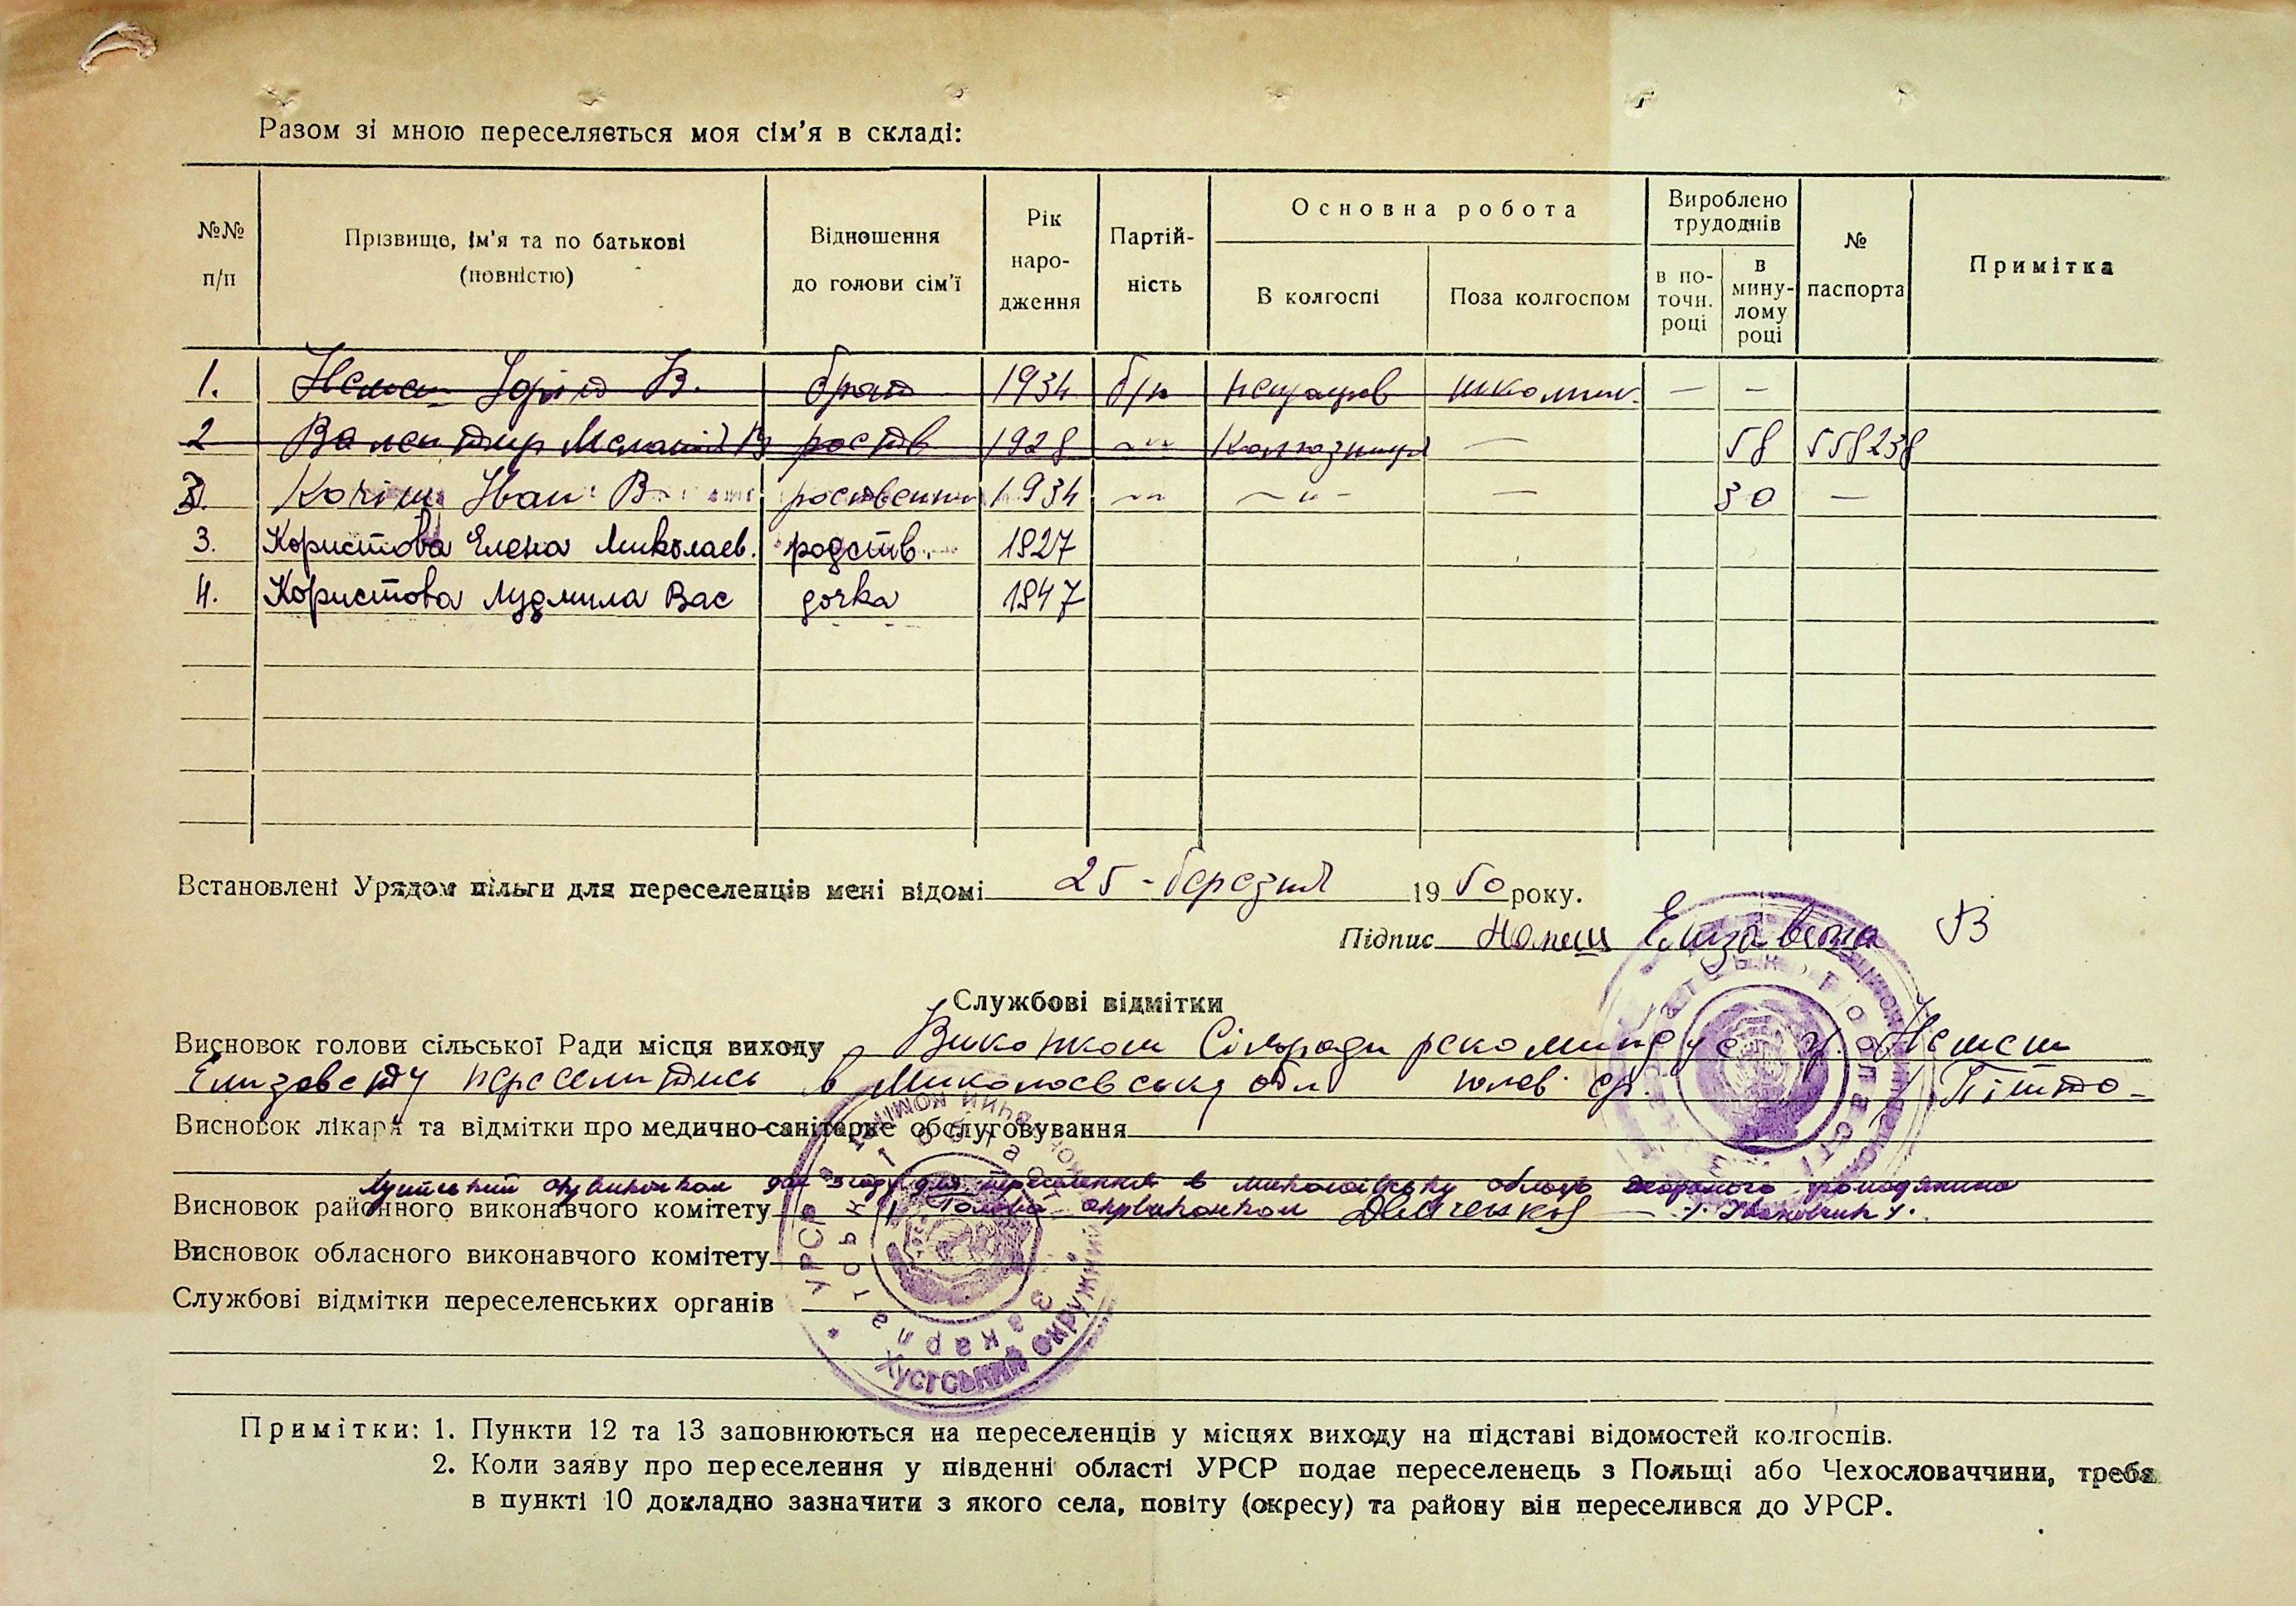 Разом зі мною переселяється моя сім'я в складі:
№№ п/п | Прізвище, ім'я та по батькові (повністю) | Відношення до голови сім'ї | Рік народження | Партійність | Основна робота | Вироблено трудоднів | № паспорта | Примітка
В колгоспі | Поза колгоспом | в поточн. році | в минулому році
1. В. брат 1934 б/п школяр — —
2 Валентир В родств 1928 —"— — 58 558238
2. Іван В 1934 —"— —"— — 30 —
3. Користова Елена Миколаев. родств. 1927
4. Користова Людмила Вас дочка 1947
Встановлені Урядом пільги для переселенців мені відомі 25 - березня 1950 року.
Підпис Немеш Елизавета В
Службові відмітки
Висновок голови сільської Ради місця виходу Виконком Сільради рекомендує гр. Немеш
Елизавету переселитись в Миколаєвську обл
Висновок лікаря та відмітки про медично-санітарне обслуговування
окрвиконком дає згоду для переселення в миколаївську область
Висновок районного виконавчого комітету Голова окрвиконком
Висновок обласного виконавчого комітету
Службові відмітки переселенських органів
УРСР Виконавчий комітет Закарпатська область Хустський окружний
Примітки: 1. Пункти 12 та 13 заповнюються на переселенців у місцях виходу на підставі відомостей колгоспів.
2. Коли заяву про переселення у південні області УРСР подає переселенець з Польщі або Чехословаччини, треба
в пункті 10 докладно зазначити з якого села, повіту (окресу) та району він переселився до УРСР.